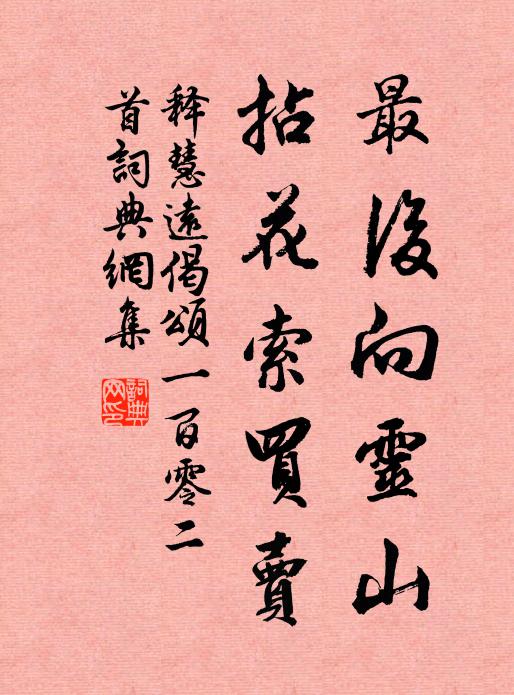 最後向靈山
拈花索買賣
釋慧遠偈頌一百零二
首詞典網集
詞典
网印